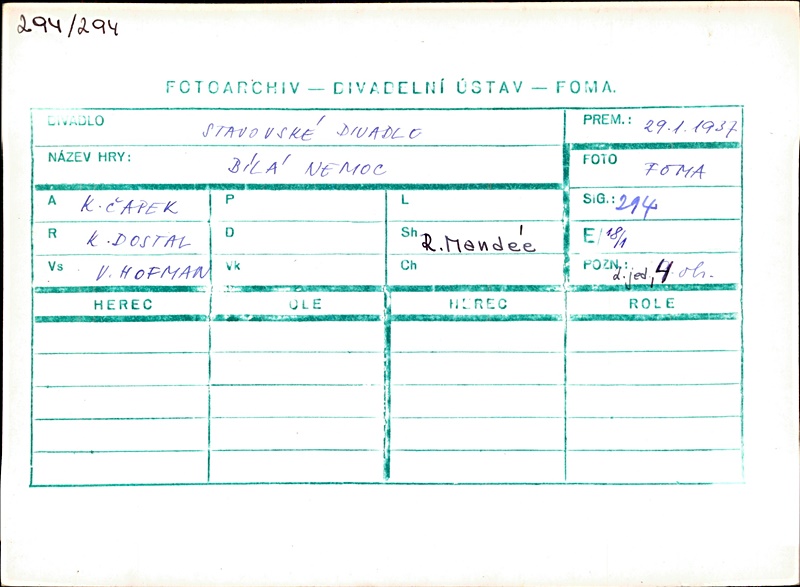 294/294
FOTOARCHIV — DIVADELNÍ ÚSTAV — FOMA.
DIVADLO STAVOVSKÉ DIVADLO PREM.: 29.1.1937
NÁZEV HRY: BÍLÁ NEMOC FOTO FOMA
A K. ČAPEK P L SIG.: 294
R K. DOSTAL D Sh R. Mandée E/18/1
Vs V. HOFMAN Vk Ch POZN.: 2. jed., 4 ob.
HEREC OLE HEREC ROLE